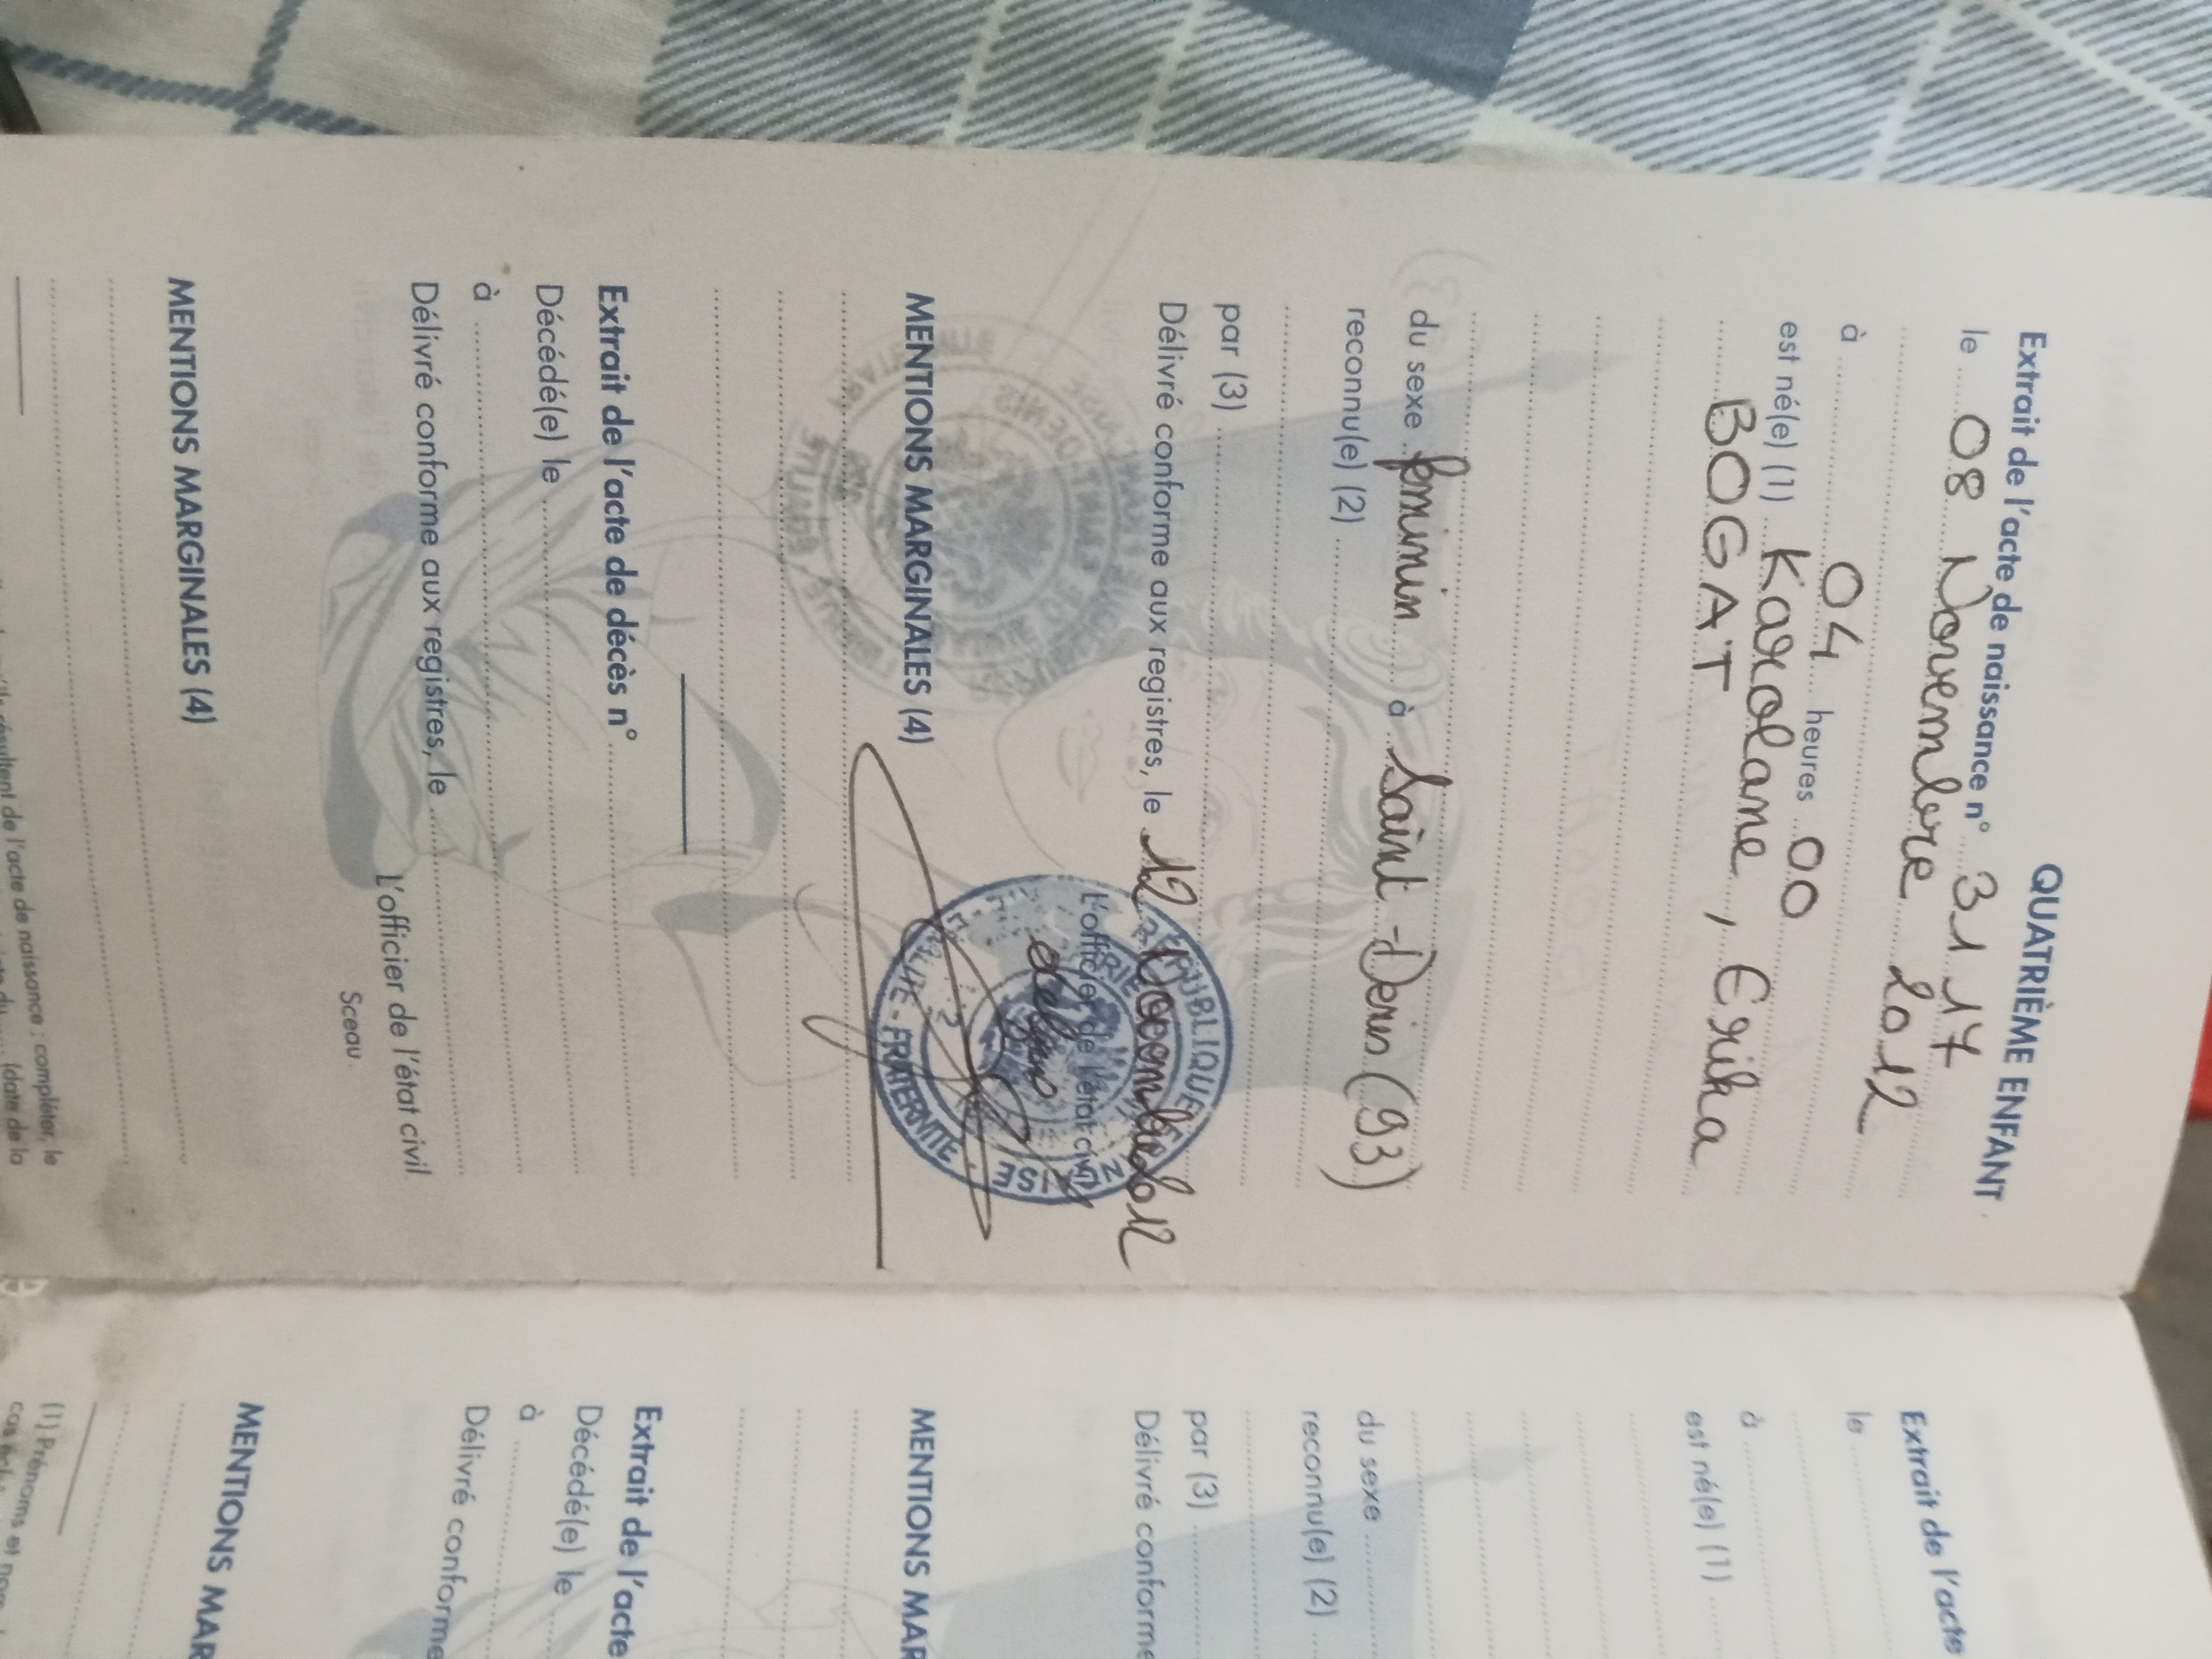 QUATRIÈME ENFANT
Extrait de l'acte de naissance n° 31 17
le 08 Novembre 2012
à 04 heures 00
est né(e) (1) Karolane, Erika
BOGAT
du sexe feminin à Saint-Denis (93)
reconnu(e) (2)
par (3)
Délivré conforme aux registres, le 12 2012
L'officier de l'état civil
RÉPUBLIQUE
FRATERNITE
MENTIONS MARGINALES (4)
Extrait de l'acte de décès n°
Décédé(e) le
à
Délivré conforme aux registres, le
L'officier de l'état civil
Sceau
MENTIONS MARGINALES (4)
résultent de l'acte de naissance : compléter, le
(date de la
Extrait de l'acte
le
à
est né(e) (1)
du sexe
reconnu(e) (2)
par (3)
Délivré conforme
MENTIONS MAR
Extrait de l'acte
Décédé(e) le
à
Délivré conforme
MENTIONS MAR
(1) Prénoms et